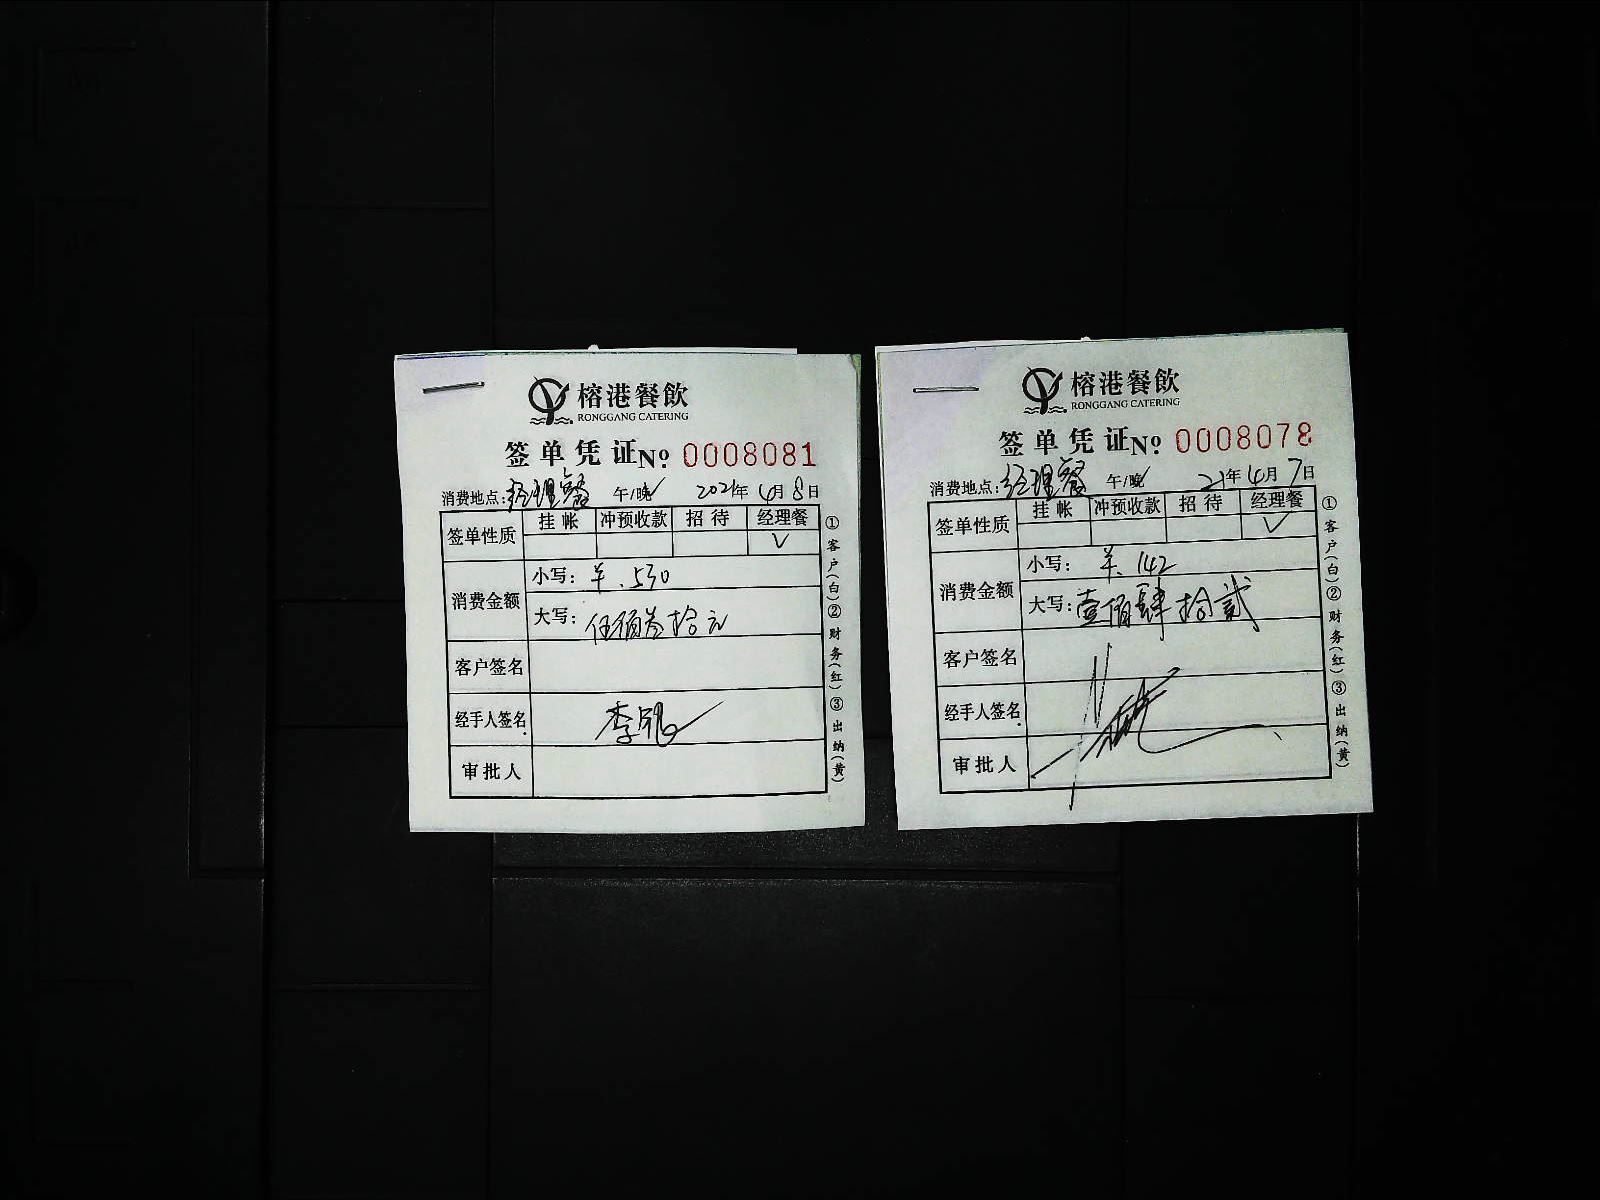 榕港餐飲
RONGGANG CATERING
签单凭证No 0008081
消费地点:经理餐 午/晚✓ 2021年4月8日
签单性质 挂帐 冲预收款 招待 经理餐
✓
消费金额 小写: 羊.530
大写: 伍佰叁拾元
客户签名
经手人签名
审批人
①客户(白)②财务(红)③出纳(黄)
榕港餐飲
RONGGANG CATERING
签单凭证No 0008078
消费地点:经理餐 午/晚✓ 21年4月7日
签单性质 挂帐 冲预收款 招待 经理餐
✓
消费金额 小写: 羊.142
大写:壹佰肆拾贰
客户签名
经手人签名
审批人
①客户(白)②财务(红)③出纳(黄)